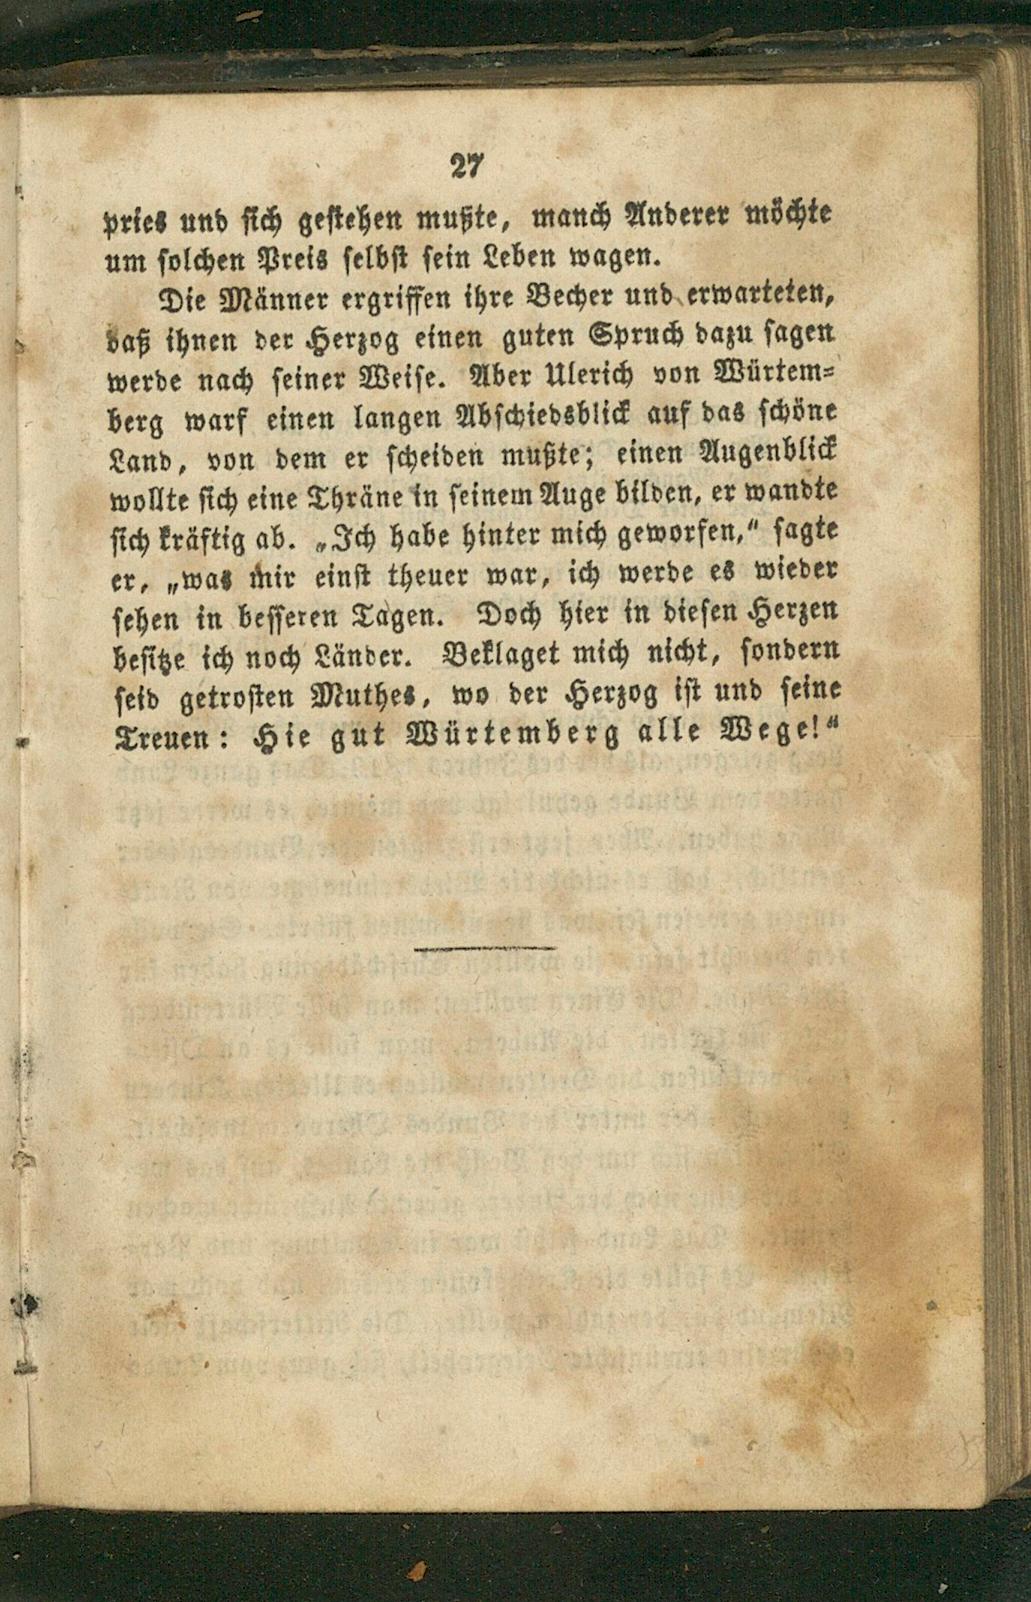 27
pries und sich gestehen mußte, manch Anderer möchte
um solchen Preis selbst sein Leben wagen.
Die Männer ergriffen ihre Becher und erwarteten,
daß ihnen der Herzog einen guten Spruch dazu sagen
werde nach seiner Weise. Aber Ulerich von Würtem-
berg warf einen langen Abschiedsblick auf das schöne
Land, von dem er scheiden mußte; einen Augenblick
wollte sich eine Thräne in seinem Auge bilden, er wandte
sich kräftig ab. „Ich habe hinter mich geworfen,“ sagte
er, „was mir einst theuer war, ich werde es wieder
sehen in besseren Tagen. Doch hier in diesen Herzen
besitze ich noch Länder. Beklaget mich nicht, sondern
seid getrosten Muthes, wo der Herzog ist und seine
Treuen: Hie gut Würtemberg alle Wege!“